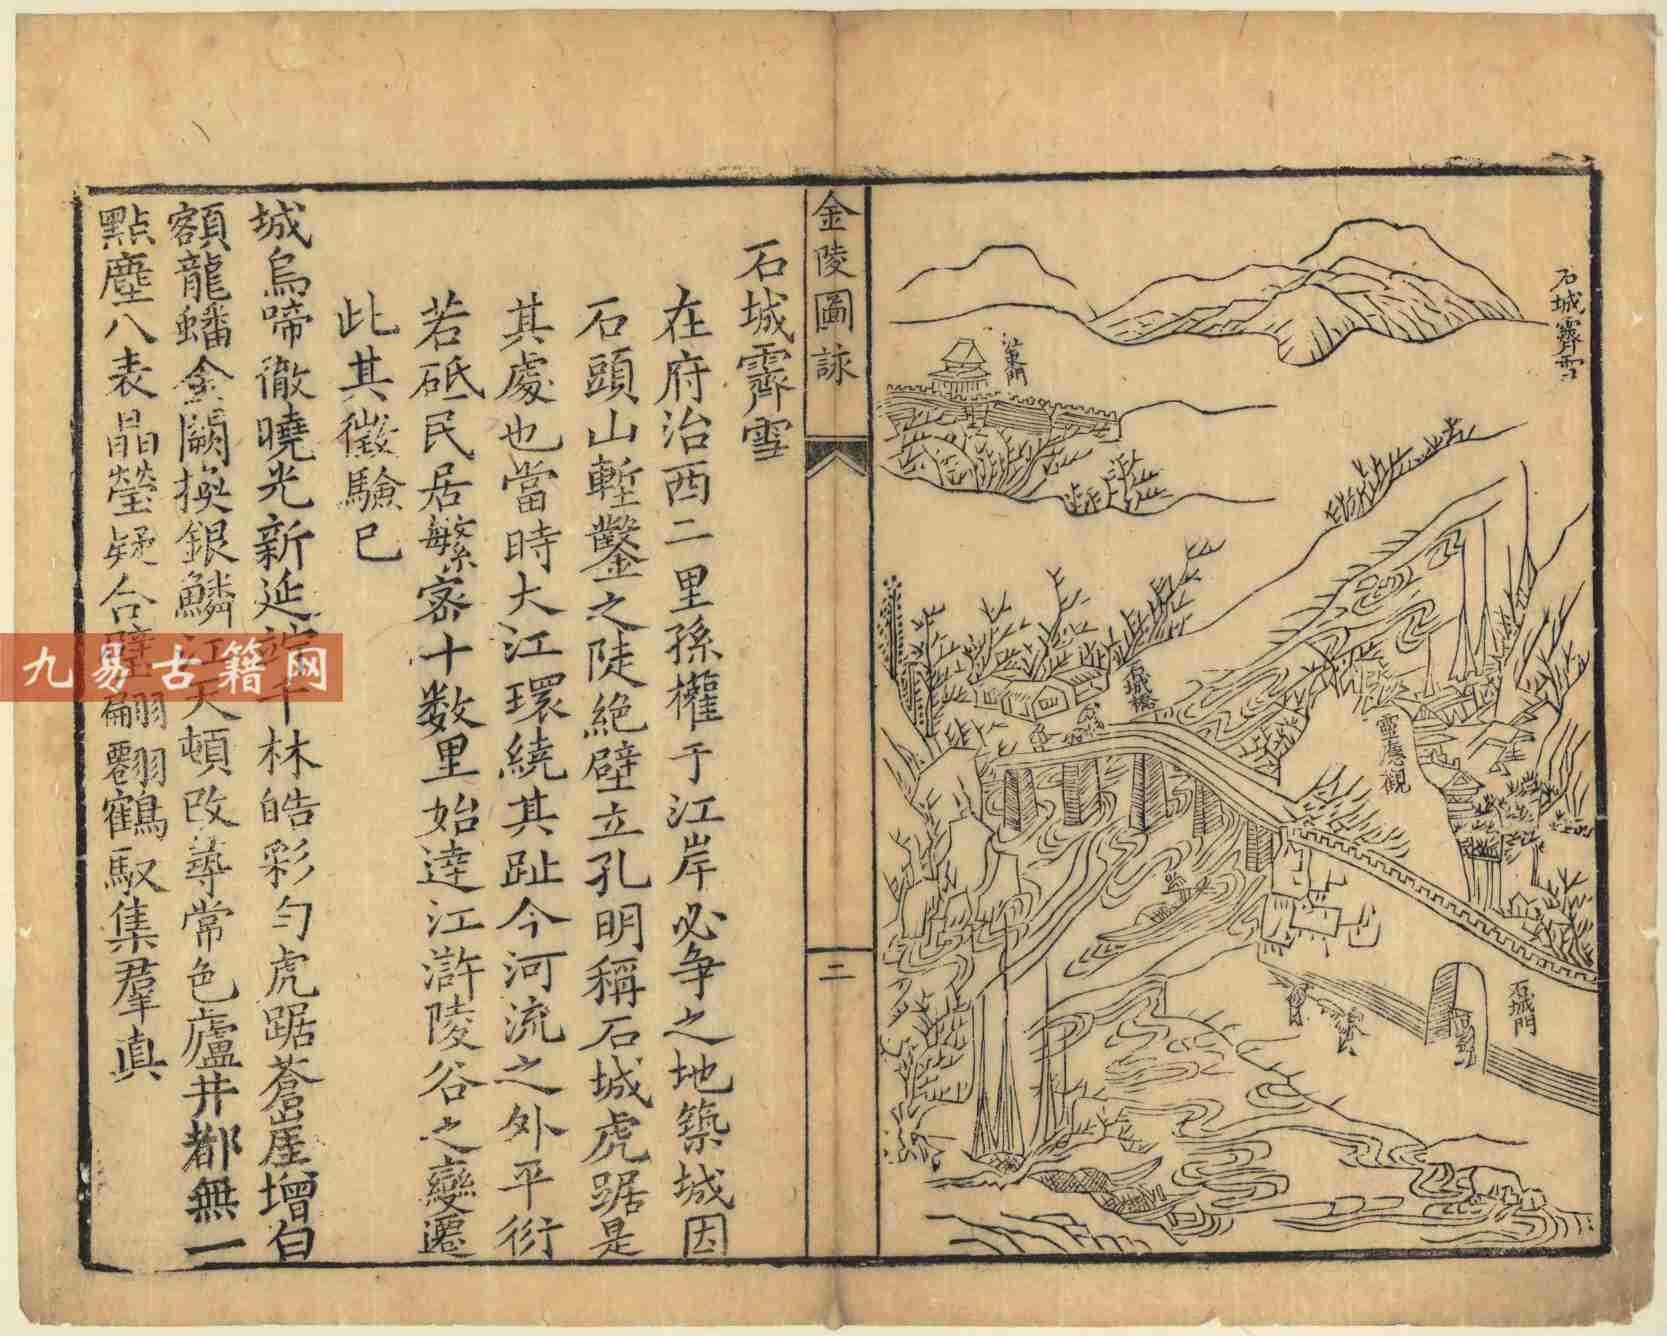 石城霽雪
江東門
石城橋
靈應觀
石城門
金陵圖詠
二
石城霽雪
在府治西二里孫權于江岸必爭之地築城因
石頭山塹鑿之陡絶壁立孔明稱石城虎踞是
其處也當時大江環繞其趾今河流之外平衍
若砥民居繁密十数里始逹江滸陵谷之變遷
此其徵驗已
城烏啼徹曉光新延 千林皓彩勻虎踞蒼崖增白
額龍蟠金闕換銀鱗江天頓改尋常色廬井都無一
點塵八表晶瑩疑合璧翩翩鶴馭集羣真
九易古籍网